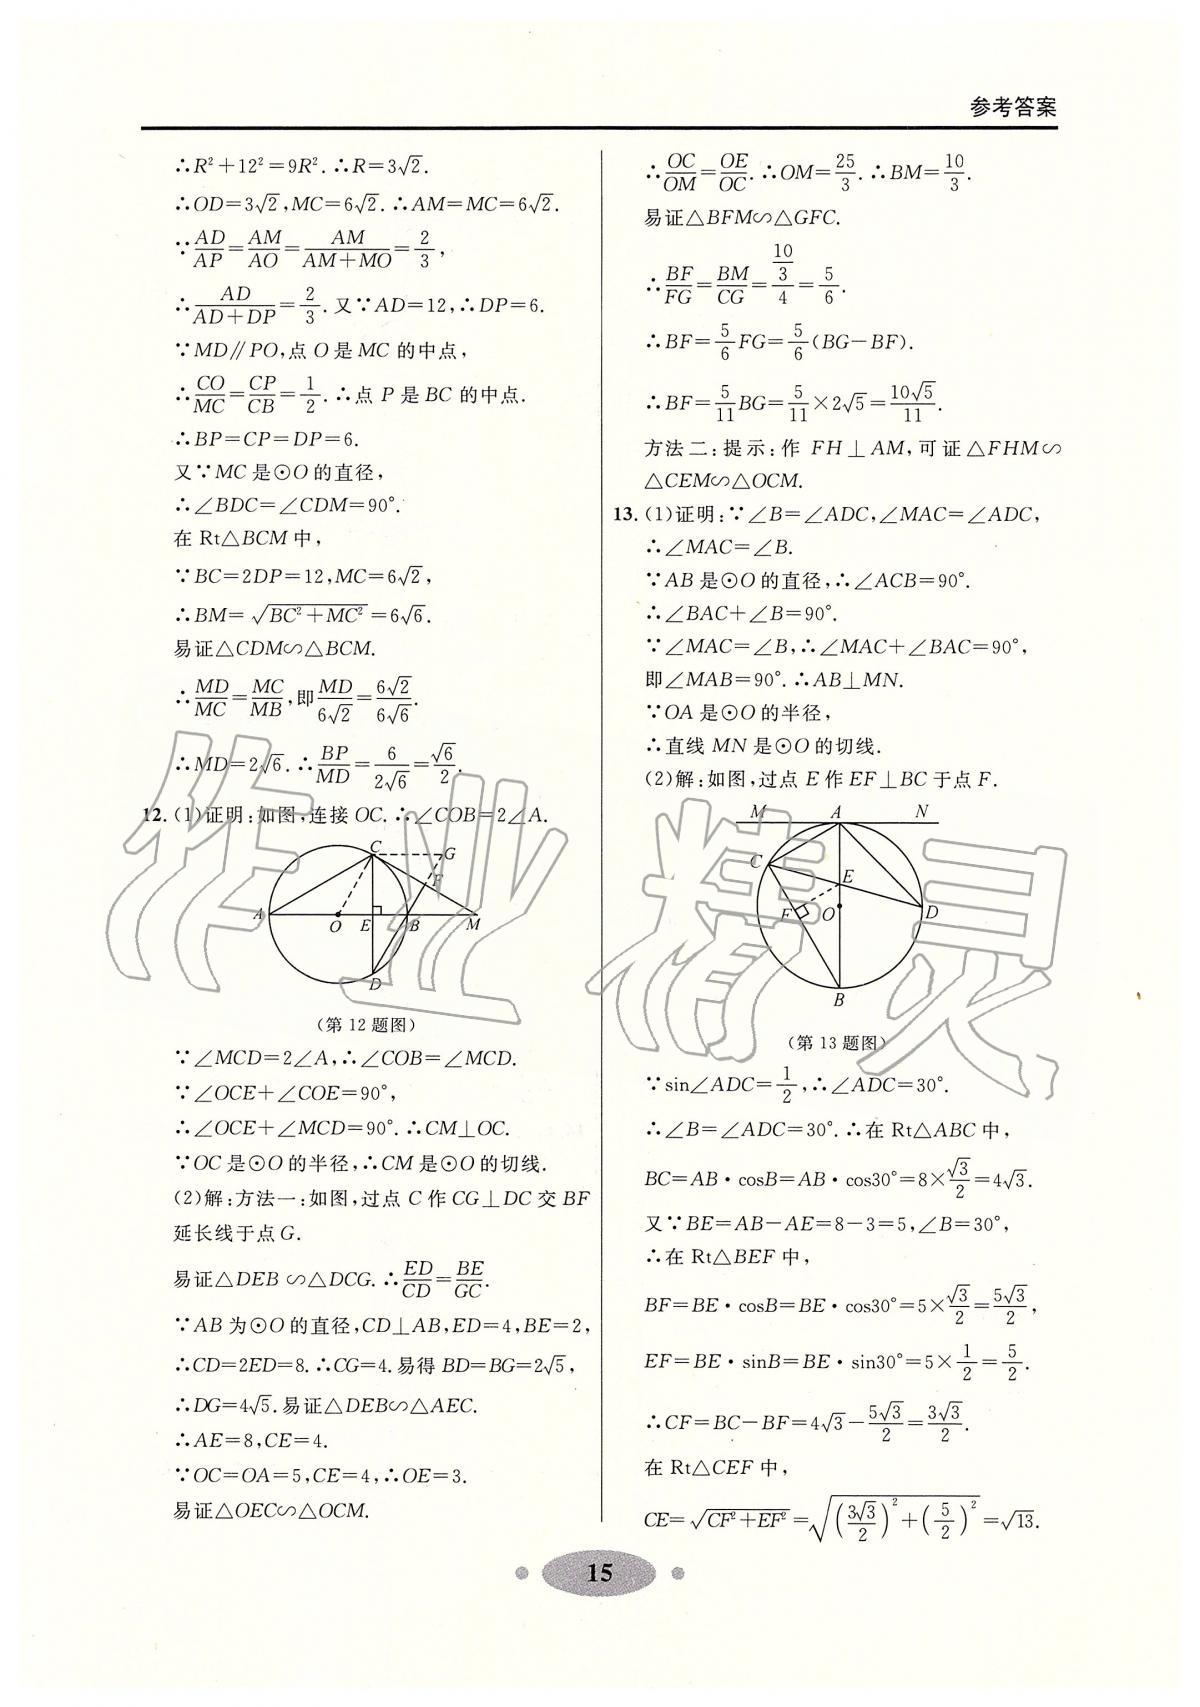 参考答案
∴R²+12²=9R². ∴R=3√2.
∴OD=3√2,MC=6√2. ∴AM=MC=6√2.
∵AD/AP=AM/AO=AM/(AM+MO)=2/3,
∴AD/(AD+DP)=2/3. 又∵AD=12,∴DP=6.
∵MD∥PO,点 O 是 MC 的中点,
∴CO/MC=CP/CB=1/2. ∴点 P 是 BC 的中点.
∴BP=CP=DP=6.
又∵MC 是⊙O 的直径,
∴∠BDC=∠CDM=90°.
在 Rt△BCM 中,
∵BC=2DP=12,MC=6√2,
∴BM=√(BC²+MC²)=6√6.
易证△CDM∽△BCM.
∴MD/MC=MC/MB,即MD/6√2=6√2/6√6.
∴MD=2√6. ∴BP/MD=6/2√6=√6/2.
12. (1)证明:如图,连接 OC. ∴∠COB=2∠A.
C G F A O E B M D
(第 12 题图)
∵∠MCD=2∠A,∴∠COB=∠MCD.
∵∠OCE+∠COE=90°,
∴∠OCE+∠MCD=90°. ∴CM⊥OC.
∵OC 是⊙O 的半径,∴CM 是⊙O 的切线.
(2)解:方法一:如图,过点 C 作 CG⊥DC 交 BF
延长线于点 G.
易证△DEB∽△DCG. ∴ED/CD=BE/GC.
∵AB 为⊙O 的直径,CD⊥AB,ED=4,BE=2,
∴CD=2ED=8. ∴CG=4. 易得 BD=BG=2√5,
∴DG=4√5. 易证△DEB∽△AEC.
∴AE=8,CE=4.
∵OC=OA=5,CE=4,∴OE=3.
易证△OEC∽△OCM.
∴OC/OM=OE/OC. ∴OM=25/3. ∴BM=10/3.
易证△BFM∽△GFC.
∴BF/FG=BM/CG=(10/3)/4=5/6.
∴BF=5/6FG=5/6(BG−BF).
∴BF=5/11BG=5/11×2√5=10√5/11.
方法二:提示:作 FH⊥AM,可证△FHM∽
△CEM∽△OCM.
13. (1)证明:∵∠B=∠ADC,∠MAC=∠ADC,
∴∠MAC=∠B.
∵AB 是⊙O 的直径,∴∠ACB=90°.
∴∠BAC+∠B=90°.
∵∠MAC=∠B,∴∠MAC+∠BAC=90°,
即∠MAB=90°. ∴AB⊥MN.
∵OA 是⊙O 的半径,
∴直线 MN 是⊙O 的切线.
(2)解:如图,过点 E 作 EF⊥BC 于点 F.
M A N C E F O D B
(第 13 题图)
∵sin∠ADC=1/2,∴∠ADC=30°.
∴∠B=∠ADC=30°. ∴在 Rt△ABC 中,
BC=AB·cosB=AB·cos30°=8×√3/2=4√3.
又∵BE=AB−AE=8−3=5,∠B=30°,
∴在 Rt△BEF 中,
BF=BE·cosB=BE·cos30°=5×√3/2=5√3/2,
EF=BE·sinB=BE·sin30°=5×1/2=5/2.
∴CF=BC−BF=4√3−5√3/2=3√3/2.
在 Rt△CEF 中,
CE=√(CF²+EF²)=√((3√3/2)²+(5/2)²)=√13.
15
作业精灵